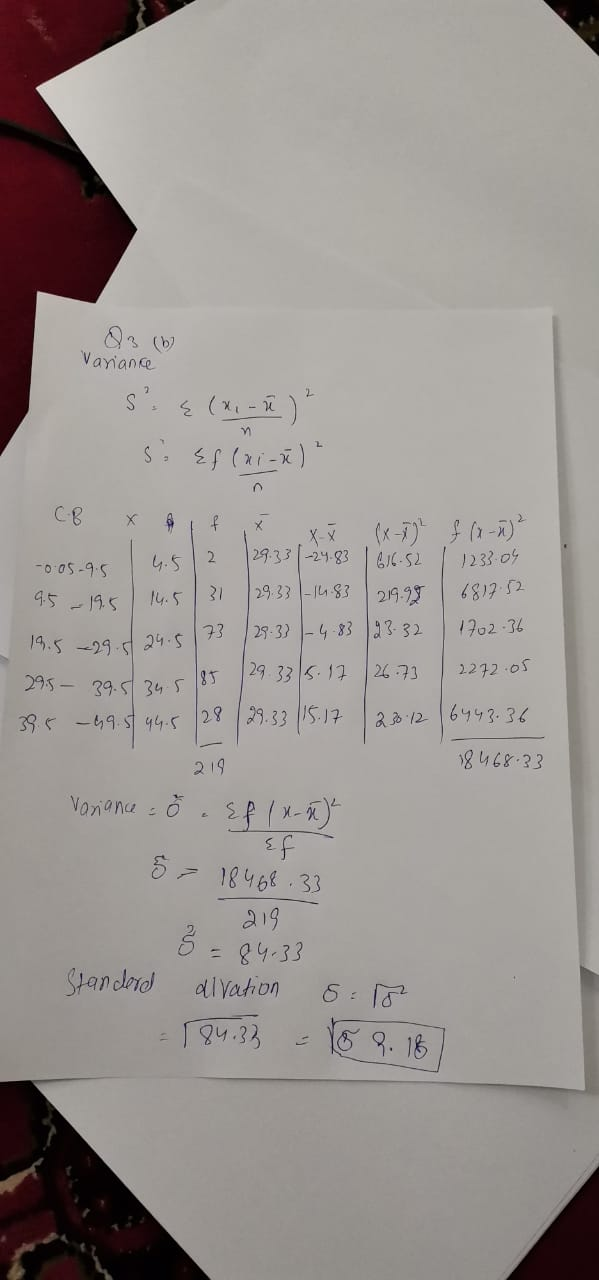 Q3 (b)
Variance
S² = Σ (xi - x̄)² / n
S² = Σf (xi - x̄)² / n
C.B x f x̄ x-x̄ (x-x̄)² f (x-x̄)²
-0.05-9.5 4.5 2 29.33 -24.83 616.52 1233.04
9.5 - 19.5 14.5 31 29.33 -14.83 219.92 6817.52
19.5 - 29.5 24.5 73 29.33 -4.83 23.32 1702.36
29.5 - 39.5 34.5 85 29.33 5.17 26.73 2272.05
39.5 - 49.5 44.5 28 29.33 15.17 230.12 6443.36
219 18468.33
Variance = σ² = Σf (x-x̄)² / Σf
σ² = 18468.33 / 219
σ² = 84.33
Standerd divation σ = √σ²
= √84.33 = 9.18